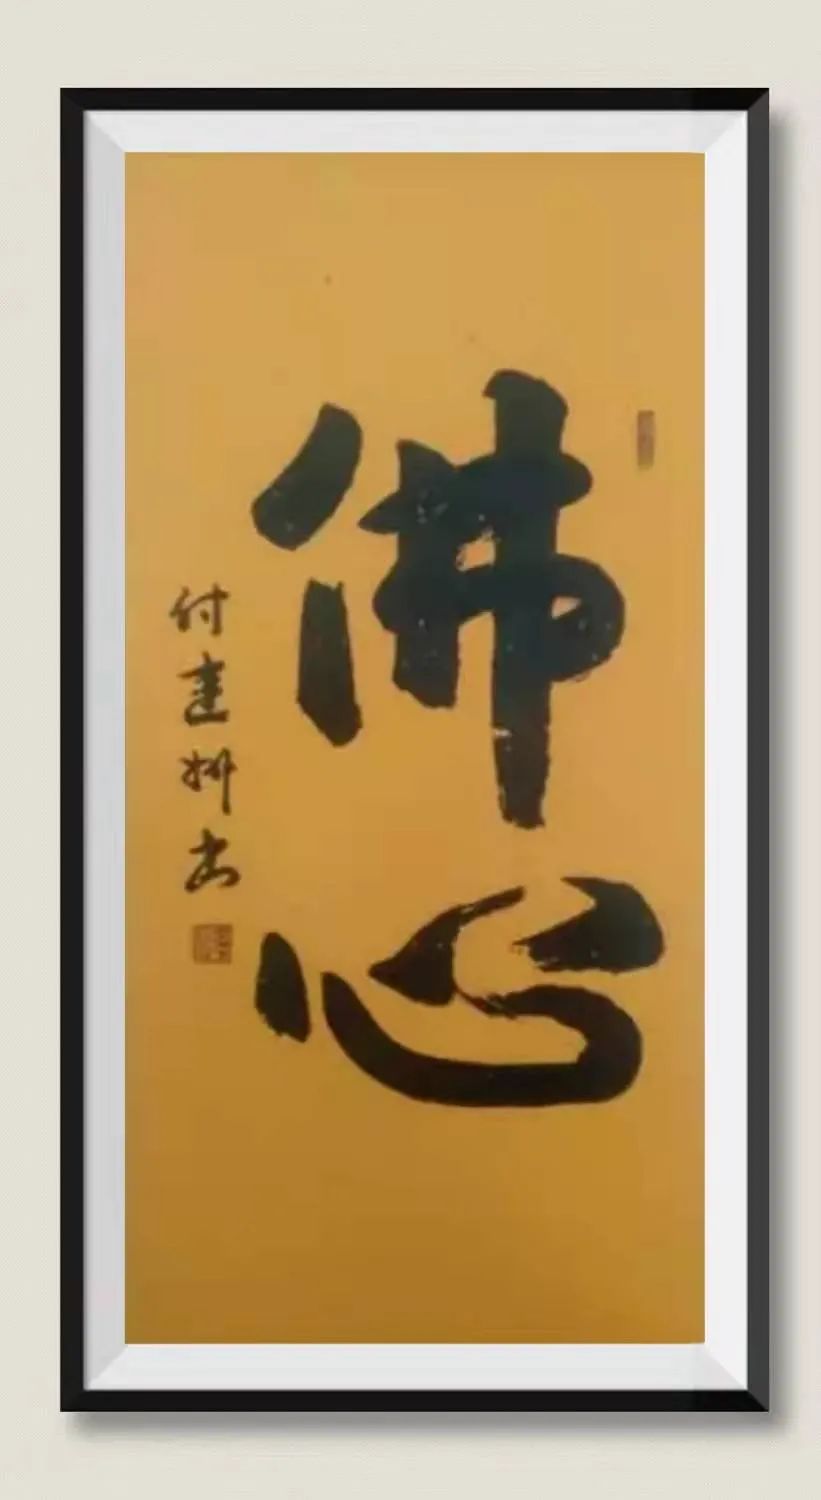 佛心
付建妍书